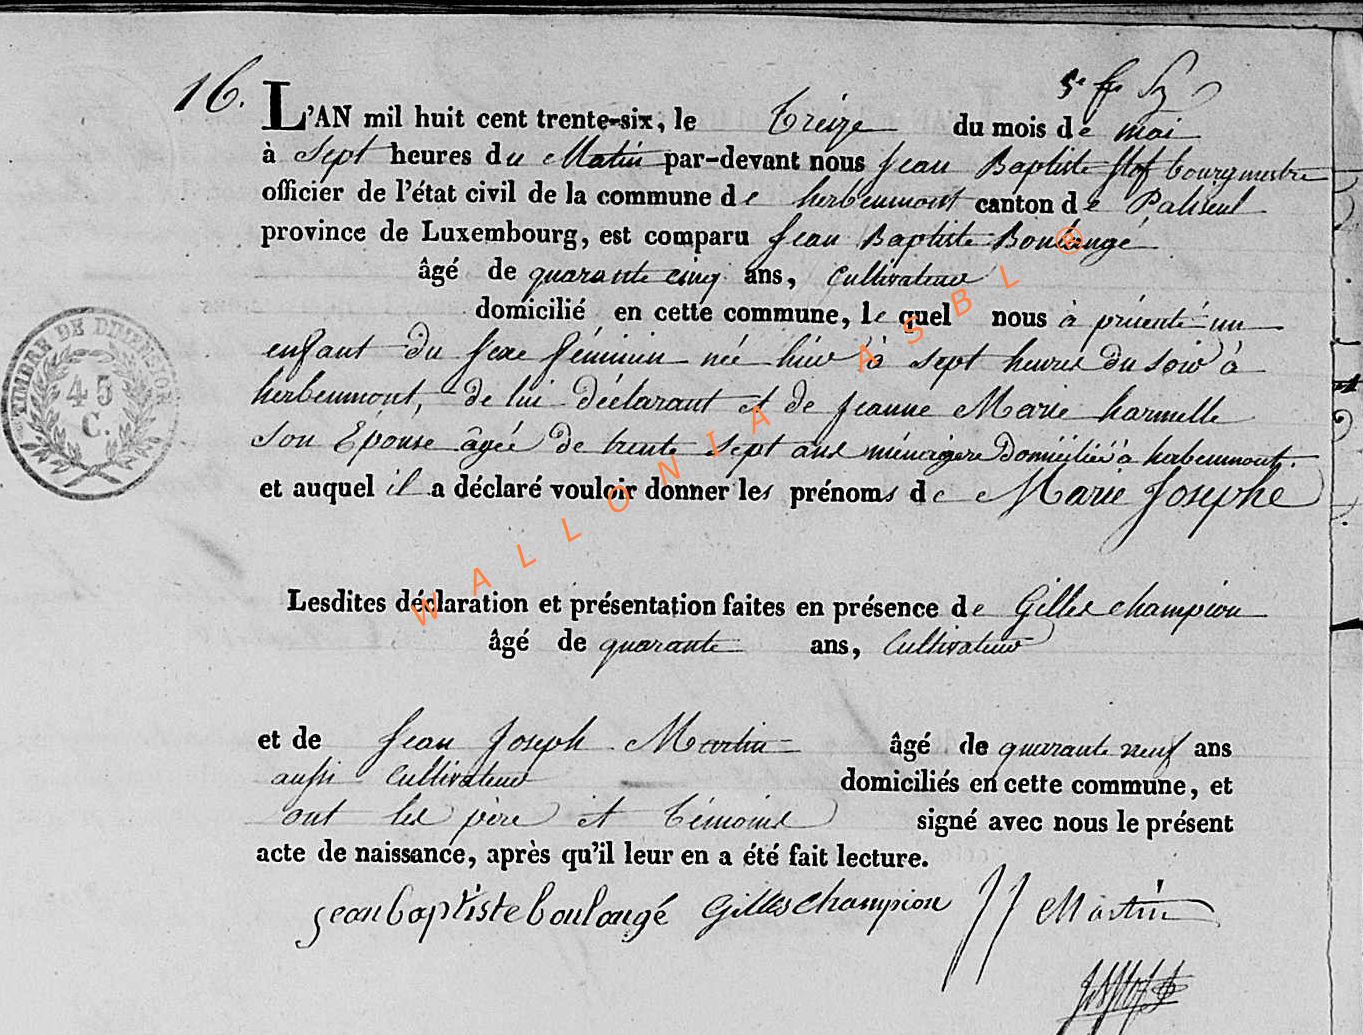 16.
L'AN mil huit cent trente-six, le treize du mois de mai
à Sept heures du Matin par-devant nous Jean Baptiste Hof bourgmestre
officier de l'état civil de la commune de herbeumont canton de Paliseul
province de Luxembourg, est comparu Jean Baptiste Boulangé
âgé de quarante cinq ans, Cultivateur
domicilié en cette commune, le quel nous à présenté un
enfant du sexe féminin née hier à sept heures du soir à
herbeumont, de lui déclarant et de Jeanne Marie harmelle
Son Epouse âgée de trente sept ans ménagère domiciliée à herbeumont.
et auquel il a déclaré vouloir donner les prénoms de Marie Josephe
TIMBRE DE DIMENSION
45
C.
Lesdites déclaration et présentation faites en présence de Gilles Champion
âgé de quarante ans, Cultivateur
et de Jean Joseph Martin âgé de quarante neuf ans
aussi Cultivateur domiciliés en cette commune, et
ont les père et témoins signé avec nous le présent
acte de naissance, après qu'il leur en a été fait lecture.
jean baptiste boulangé Gilles Champion JJ Martin
WALLONIA ASBL ®